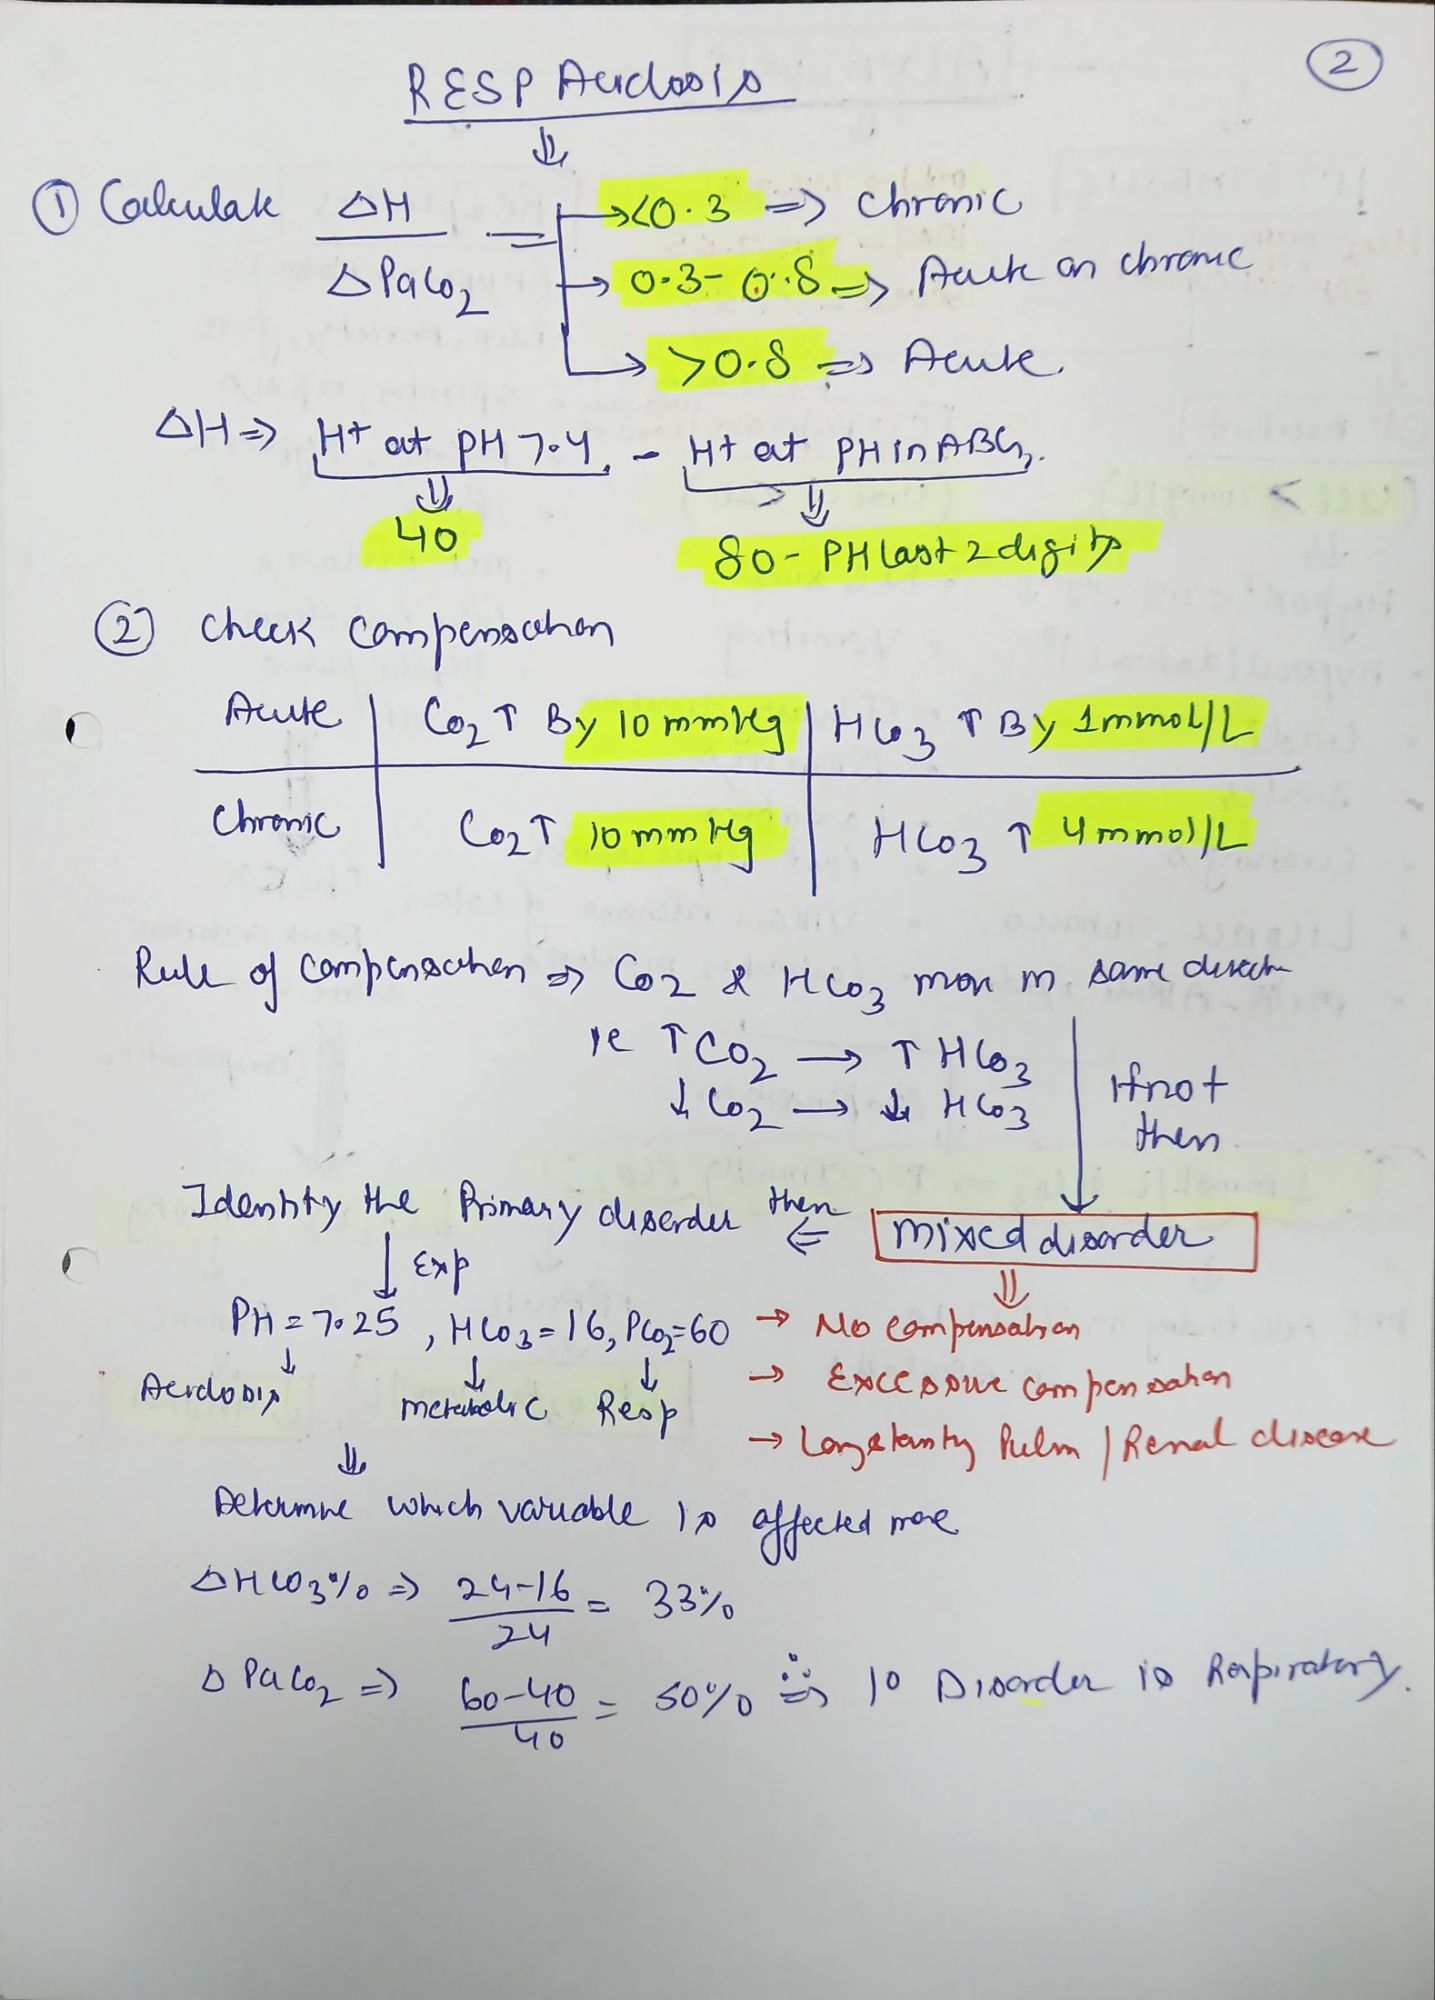 2
RESP Acidosis
⇓
① Calculate ΔH / ΔPaCO2 = → <0.3 ⇒ Chronic
→ 0.3-0.8 ⇒ Acute on chronic
→ >0.8 ⇒ Acute.
ΔH ⇒ H+ at PH 7.4 - H+ at PH in ABG.
⇓ ⇓
40 80 - PH last 2 digits
② Check Compensation
Acute | CO2 ↑ By 10 mmHg | HCO3 ↑ By 1mmol/L
Chronic | CO2 ↑ 10 mm Hg | HCO3 ↑ 4 mmol/L
Rule of Compensation ⇒ CO2 & HCO3 move in same direct
ie ↑ CO2 → ↑ HCO3
↓ CO2 → ↓ HCO3
If not then
Identity the Primary disorder then ⇐ mixed disorder
↓ Exp ⇓
PH = 7.25, HCO3 = 16, PCO2 = 60 → No compensation
↓ ↓ ↓
Acidosis metabolic Resp → Excessive compensation
⇓ → Longstanty Pulm / Renal disease
Determine which variable is affected more
ΔHCO3% ⇒ 24-16 / 24 = 33%
Δ PaCO2 ⇒ 60-40 / 40 = 50% ∴ ⇒ 1° Disorder is Respiratory.